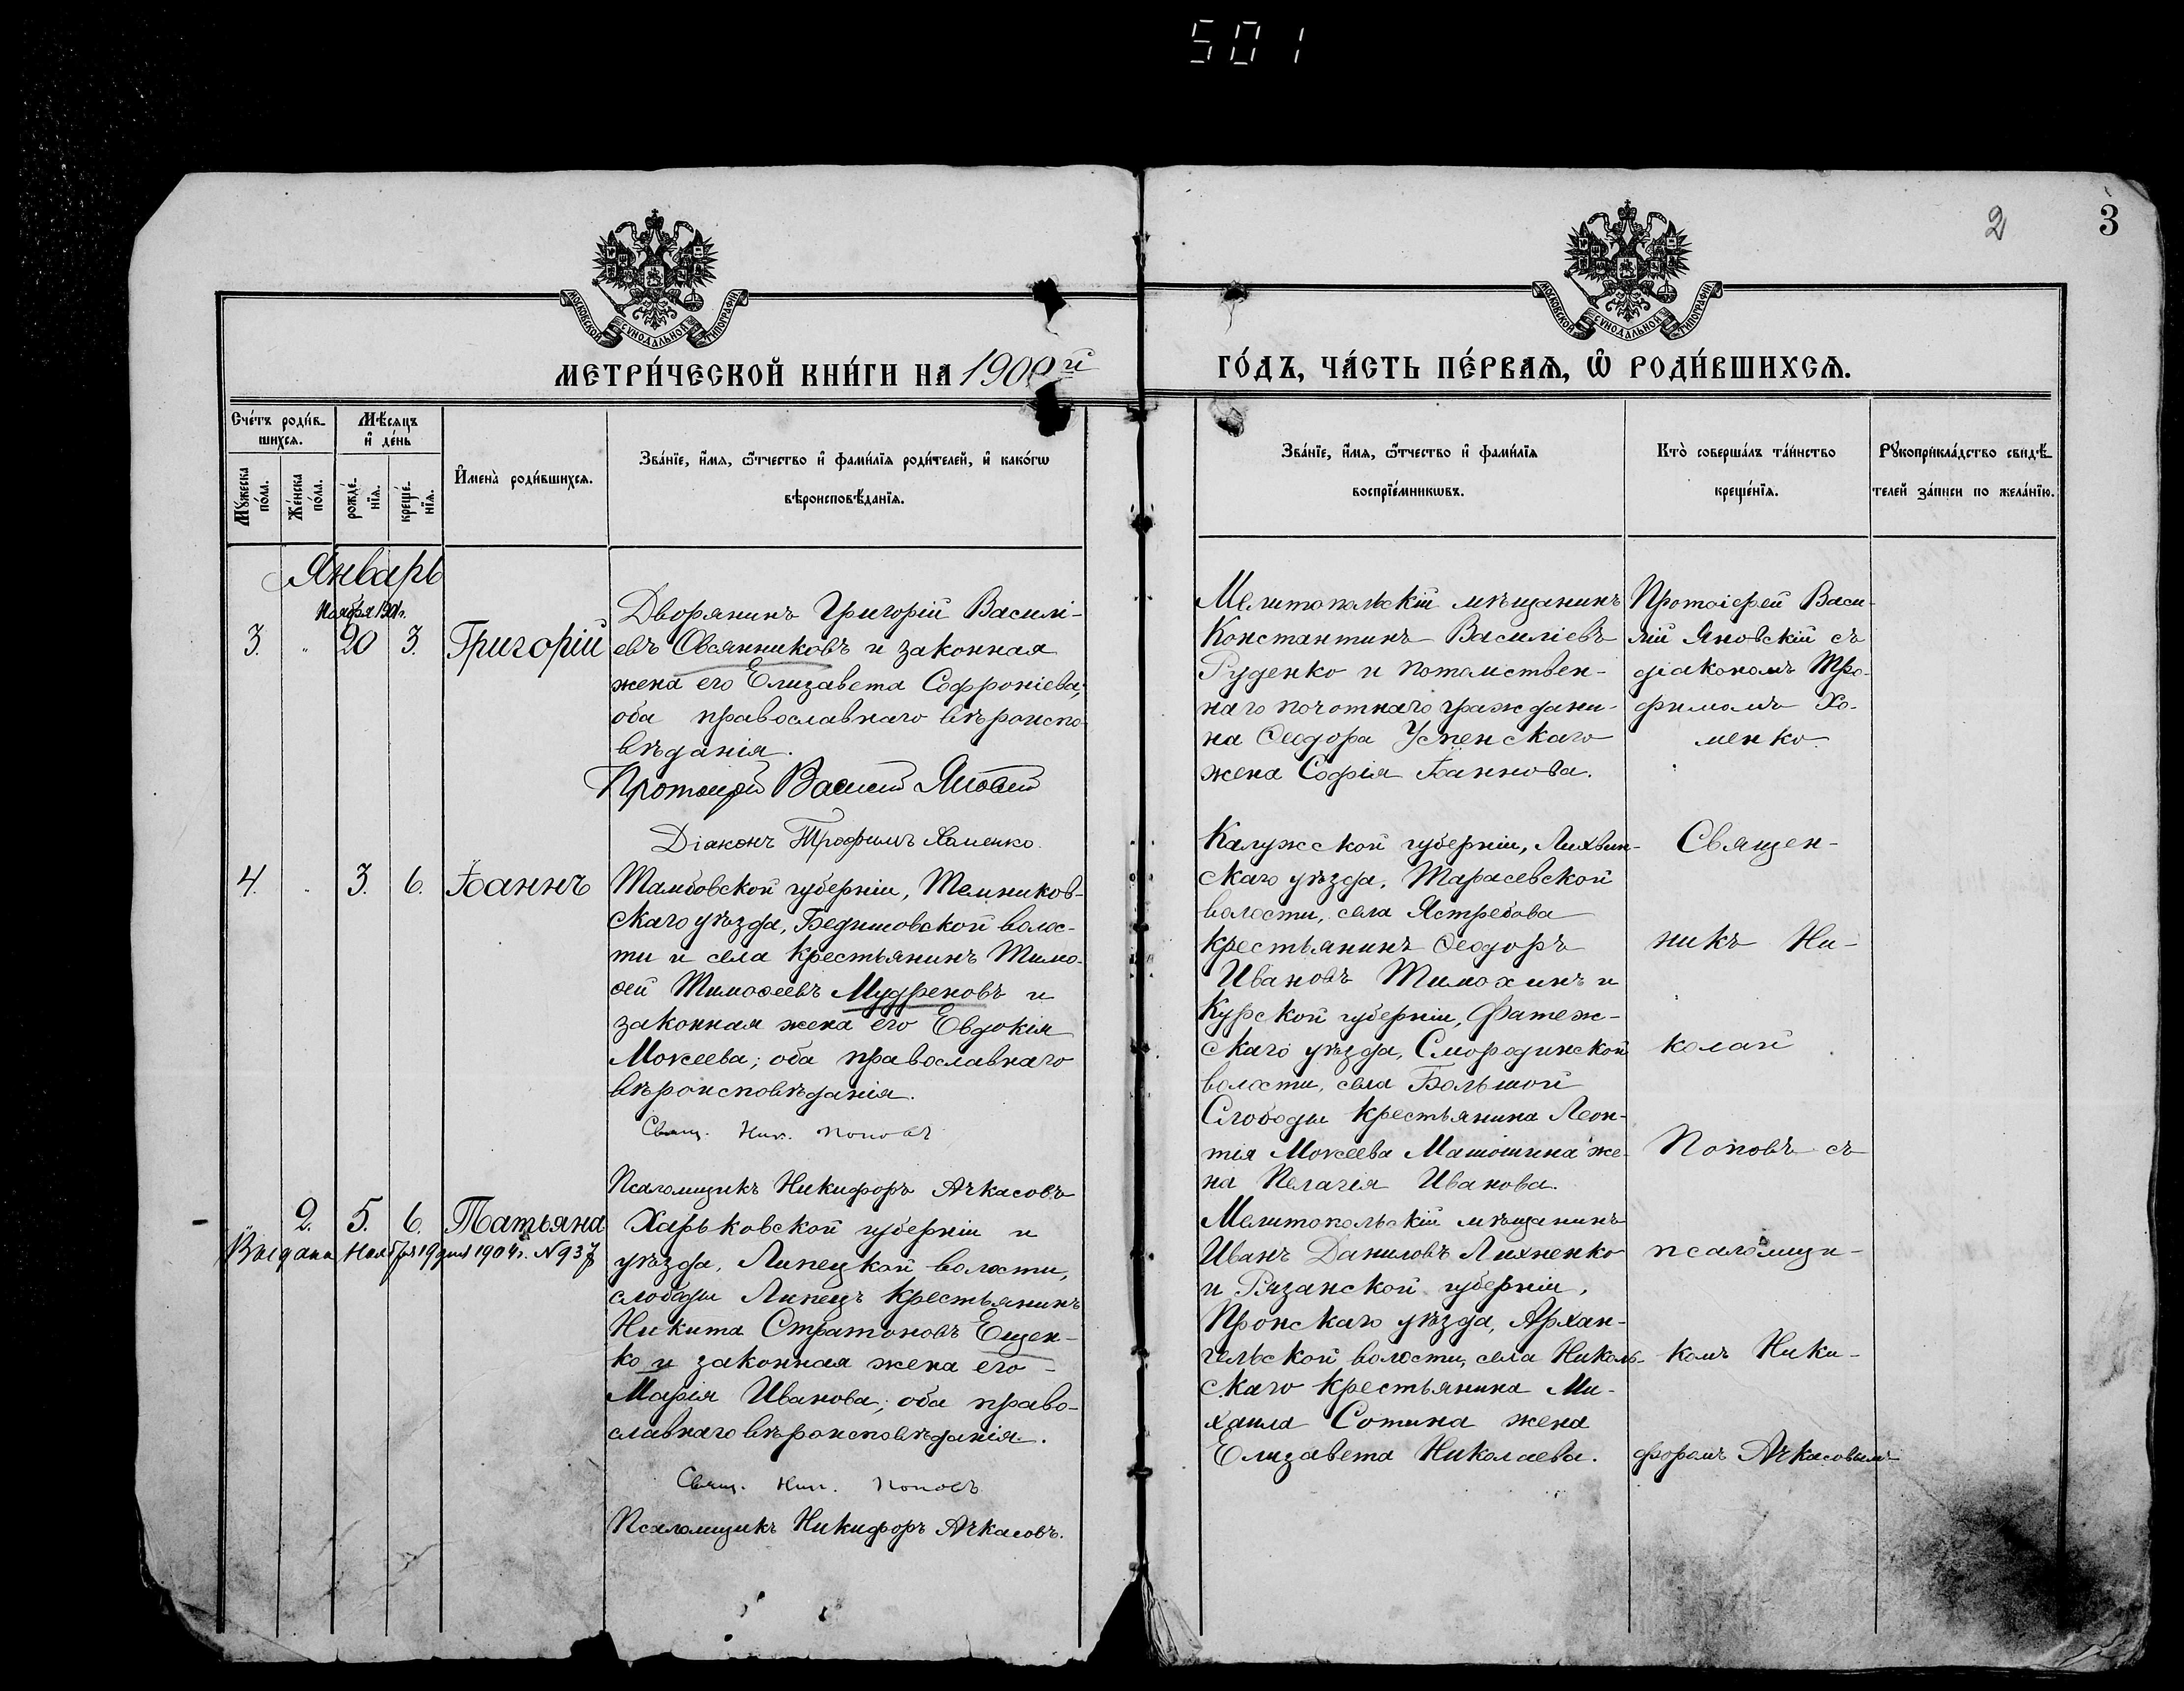 501
2
3
МОСКОВСКОЙ СѴНОДАЛЬНОЙ ТИПОГРАФІИ
МОСКОВСКОЙ СѴНОДАЛЬНОЙ ТИПОГРАФІИ
МЕТРИ́ЧЕСКОЙ КНИ́ГИ НА 190 й
ГО́ДЪ, ЧА́СТЬ ПЕ́РВАѦ, Ѽ РОДИ́ВШИХСѦ.
Сче́тъ роди́в-
шихсѧ.
Мѣ́сѧцъ
и҆ де́нь
Мꙋ́жеска
по́ла.
Же́нска
по́ла.
рожде́-
нїѧ.
креще́-
нїѧ.
И҆мена̀ роди́вшихсѧ.
Зва́нїе, и҆́мѧ, ѻ҆́тчество и҆ фами́лїѧ роди́телей, и҆ како́гѡ
вѣроисповѣ́данїѧ.
Зва́нїе, и҆́мѧ, ѻ҆́тчество и҆ фами́лїѧ
воспрїе́мникѡвъ.
Кто̀ соверша́лъ та́инство
креще́нїѧ.
Рꙋкоприкла́дство свидѣ́-
телей за́писи по жела́нїю.
Январь
Ноября 1901г.
3. " 20 3. Григорій
Дворянинъ Григорій Василі-
евъ Овсянниковъ и законная
жена его Елизавета Софроніева;
оба православнаго вѣроиспо-
вѣданія.
Протоіерей Василій Яновскій
Діаконъ Трофимъ Хоменко.
Мелитопольскій мѣщанинъ
Константинъ Василіевъ
Руденко и потомствен-
наго почотнаго граждани-
на Ѳеодора Успенскаго
жена Софія Іоаннова.
Протоіерей Васи-
лій Яновскій съ
діакономъ Тро-
фимомъ Хо-
менко.
4. " 3. 6. Іоаннъ
Тамбовской губерніи, Темников-
скаго уѣзда, Бедишовской волос-
ти и села крестьянинъ Тимо-
ѳей Тимоѳеевъ Мудреновъ и
законная жена его Евдокія
Мокеева; оба православнаго
вѣроисповѣданія.
Свящ. Ник. Поповъ
Псаломщикъ Никифоръ Ачкасовъ
Калужской губерніи, Лихвин-
скаго уѣзда, Тарасевской
волости, села Ястребова
крестьянинъ Ѳеодоръ
Ивановъ Тимохинъ и
Курской губерніи, Фатеж-
скаго уѣзда, Смородинской
волости, села Большой
Слободы крестьянина Леон-
тія Мокеева Матюшина же-
на Пелагія Иванова.
Священ-
никъ Ни-
колай
Поповъ съ
псаломщи-
комъ Ники-
форомъ Ачкасовымъ
2. 5. 6. Татьяна
Выдана Ноября 19 дня 1904г. N 937
Харьковской губерніи и
уѣзда, Липецкой волости,
слободы Липецъ крестьянинъ
Никита Стратоновъ Ещен-
ко и законная жена его -
Марія Иванова; оба право-
славнаго вѣроисповѣданія.
Свящ. Ник. Поповъ
Псаломщикъ Никифоръ Ачкасовъ.
Мелитопольскій мѣщанинъ
Иванъ Даниловъ Лихненко
и Рязанской губерніи,
Пронскаго уѣзда, Архан-
гельской волости, села Николь-
скаго крестьянина Ми-
хаила Сотина жена
Елизавета Николаева.